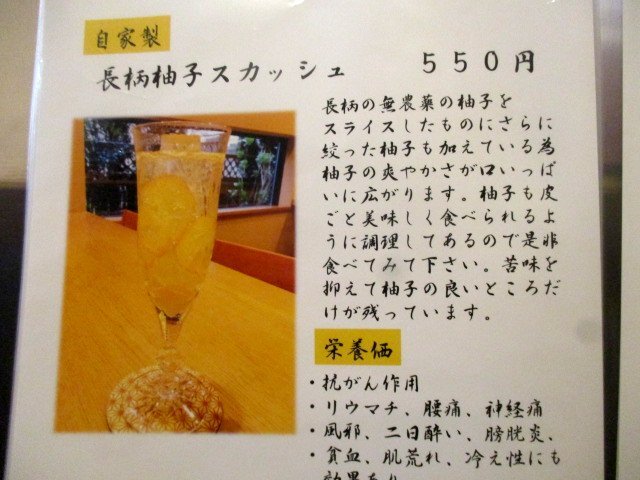 自家製
長柄柚子スカッシュ　５５０円
長柄の無農薬の柚子を
スライスしたものにさらに
絞った柚子も加えている為
柚子の爽やかさが口いっぱ
いに広がります。柚子も皮
ごと美味しく食べられるよ
うに調理してあるので是非
食べてみて下さい。苦味を
抑えて柚子の良いところだ
けが残っています。
栄養価
・抗がん作用
・リウマチ、腰痛、神経痛
・風邪、二日酔い、膀胱炎、
・貧血、肌荒れ、冷え性にも
効果あり